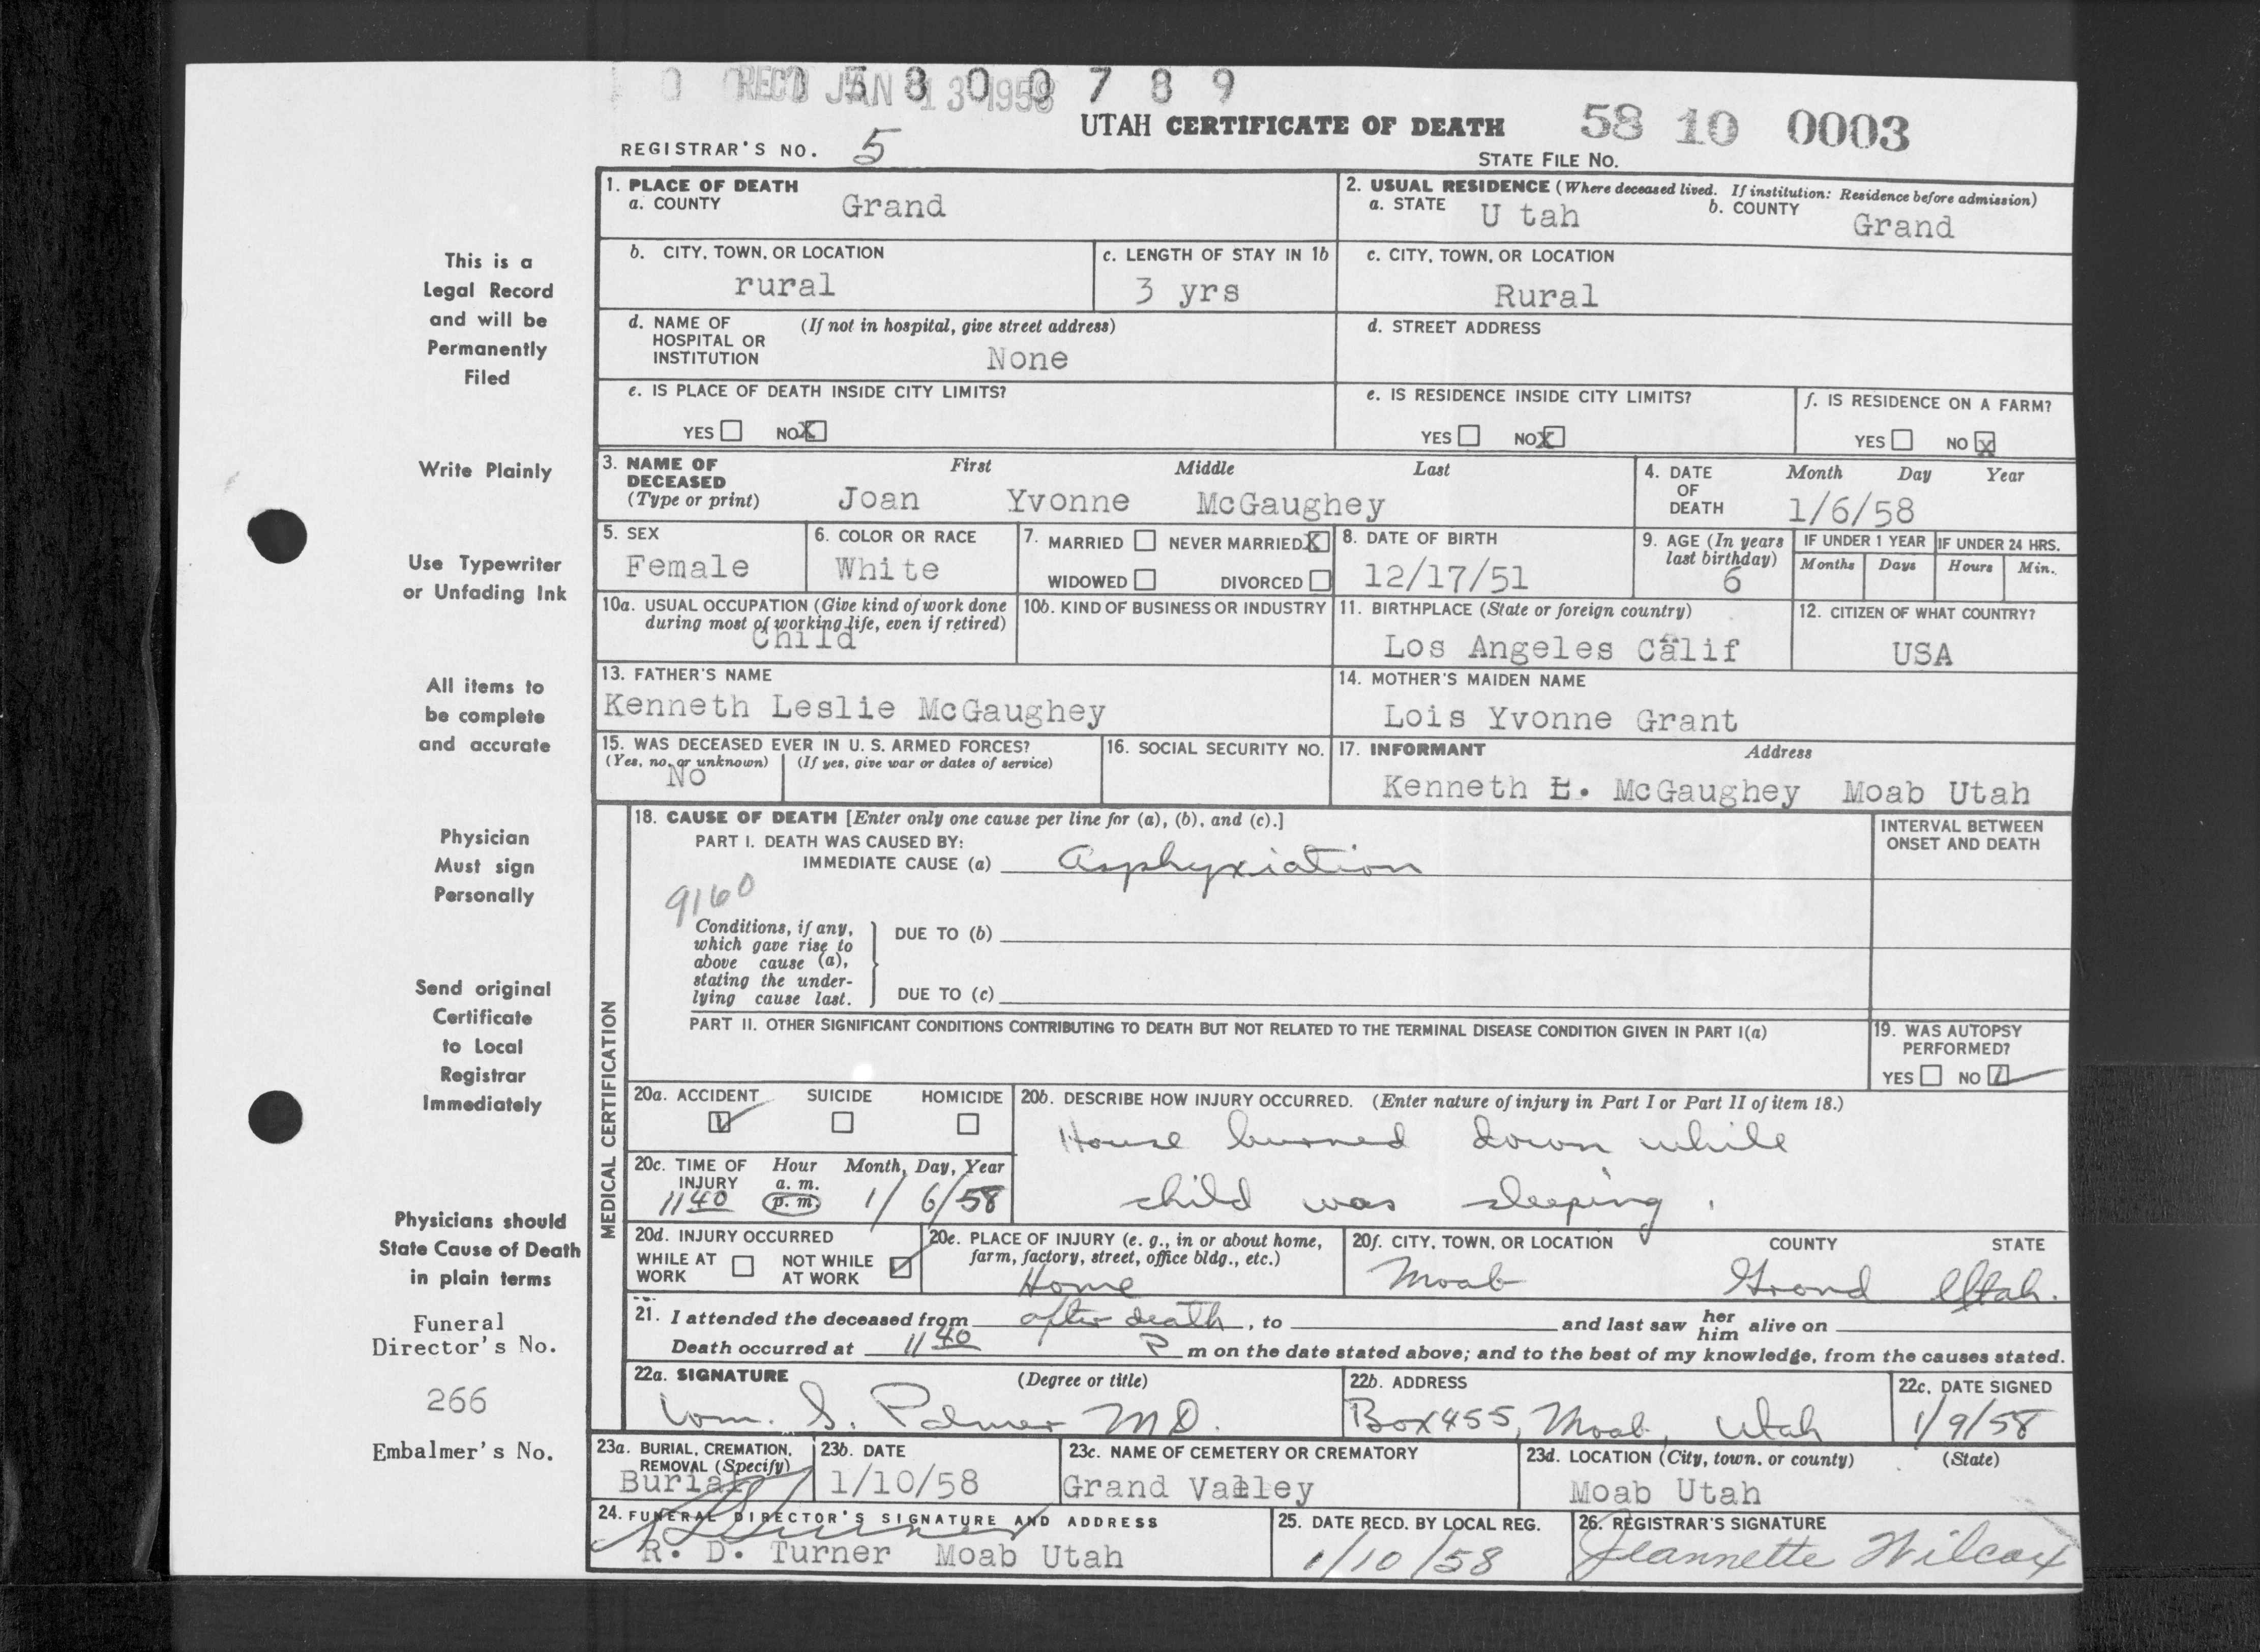 REC'D JAN 13 1958
5 8 0 0 7 8 9
UTAH CERTIFICATE OF DEATH 58 10 0003
REGISTRAR'S NO. 5
STATE FILE NO.
1. PLACE OF DEATH
a. COUNTY Grand
2. USUAL RESIDENCE (Where deceased lived. If institution: Residence before admission)
a. STATE U tah b. COUNTY Grand
b. CITY, TOWN, OR LOCATION
rural
c. LENGTH OF STAY IN 1b
3 yrs
c. CITY, TOWN, OR LOCATION
Rural
d. NAME OF HOSPITAL OR INSTITUTION (If not in hospital, give street address)
None
d. STREET ADDRESS
e. IS PLACE OF DEATH INSIDE CITY LIMITS?
YES NO X
e. IS RESIDENCE INSIDE CITY LIMITS?
YES NO X
f. IS RESIDENCE ON A FARM?
YES NO X
3. NAME OF DECEASED (Type or print) First Middle Last
Joan Yvonne McGaughey
4. DATE OF DEATH Month Day Year
1/6/58
5. SEX
Female
6. COLOR OR RACE
White
7. MARRIED NEVER MARRIED X
WIDOWED DIVORCED
8. DATE OF BIRTH
12/17/51
9. AGE (In years last birthday)
6
IF UNDER 1 YEAR IF UNDER 24 HRS.
Months Days Hours Min.
10a. USUAL OCCUPATION (Give kind of work done during most of working life, even if retired)
Child
10b. KIND OF BUSINESS OR INDUSTRY
11. BIRTHPLACE (State or foreign country)
Los Angeles Calif
12. CITIZEN OF WHAT COUNTRY?
USA
13. FATHER'S NAME
Kenneth Leslie McGaughey
14. MOTHER'S MAIDEN NAME
Lois Yvonne Grant
15. WAS DECEASED EVER IN U. S. ARMED FORCES?
(Yes, no, or unknown) (If yes, give war or dates of service)
No
16. SOCIAL SECURITY NO.
17. INFORMANT Address
Kenneth L. McGaughey Moab Utah
MEDICAL CERTIFICATION
18. CAUSE OF DEATH [Enter only one cause per line for (a), (b), and (c).]
PART I. DEATH WAS CAUSED BY:
IMMEDIATE CAUSE (a) Asphyxiation
INTERVAL BETWEEN ONSET AND DEATH
9160
Conditions, if any, which gave rise to above cause (a), stating the underlying cause last.
DUE TO (b)
DUE TO (c)
PART II. OTHER SIGNIFICANT CONDITIONS CONTRIBUTING TO DEATH BUT NOT RELATED TO THE TERMINAL DISEASE CONDITION GIVEN IN PART I(a)
19. WAS AUTOPSY PERFORMED?
YES NO
20a. ACCIDENT SUICIDE HOMICIDE
20b. DESCRIBE HOW INJURY OCCURRED. (Enter nature of injury in Part I or Part II of item 18.)
House burned down while
child was sleeping.
20c. TIME OF INJURY Hour Month, Day, Year
a. m.
1140 p. m. 1/6/58
20d. INJURY OCCURRED
WHILE AT WORK NOT WHILE AT WORK
20e. PLACE OF INJURY (e. g., in or about home, farm, factory, street, office bldg., etc.)
Home
20f. CITY, TOWN, OR LOCATION COUNTY STATE
Moab Grand Utah.
21. I attended the deceased from after death, to and last saw her him alive on
Death occurred at 1140 P m on the date stated above; and to the best of my knowledge, from the causes stated.
22a. SIGNATURE (Degree or title)
Wm. S. Palmer M.D.
22b. ADDRESS
Box 455, Moab, Utah
22c. DATE SIGNED
1/9/58
23a. BURIAL, CREMATION, REMOVAL (Specify)
Burial
23b. DATE
1/10/58
23c. NAME OF CEMETERY OR CREMATORY
Grand Valley
23d. LOCATION (City, town, or county) (State)
Moab Utah
24. FUNERAL DIRECTOR'S SIGNATURE AND ADDRESS
R. D. Turner Moab Utah
25. DATE RECD. BY LOCAL REG.
1/10/58
26. REGISTRAR'S SIGNATURE
Jeannette Wilcox
This is a
Legal Record
and will be
Permanently
Filed
Write Plainly
Use Typewriter
or Unfading Ink
All items to
be complete
and accurate
Physician
Must sign
Personally
Send original
Certificate
to Local
Registrar
Immediately
Physicians should
State Cause of Death
in plain terms
Funeral
Director's No.
266
Embalmer's No.